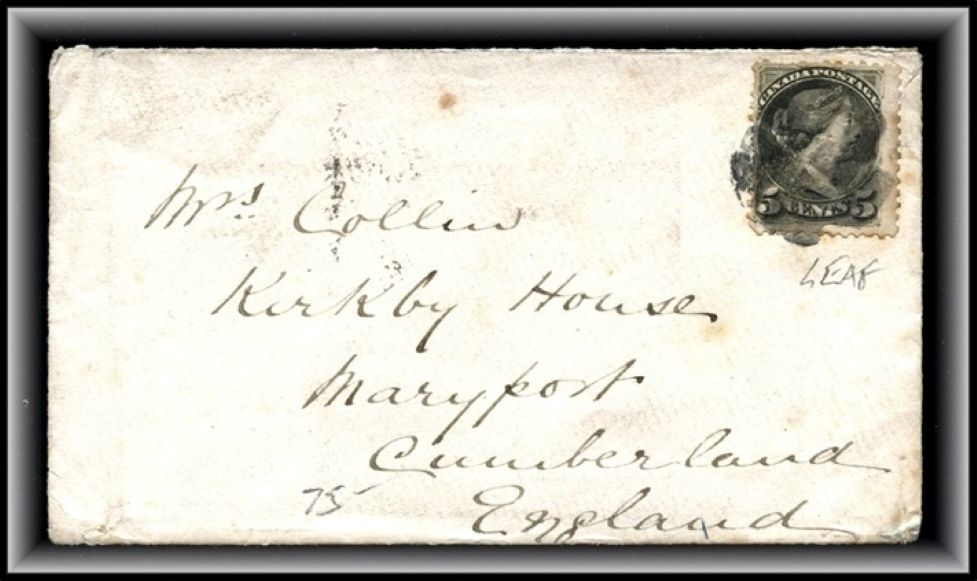 CANADA POSTAGE
5 CENTS 5
LEAF
Mrs. Collin
Kirkby House
Maryport
Cumberland
75
England